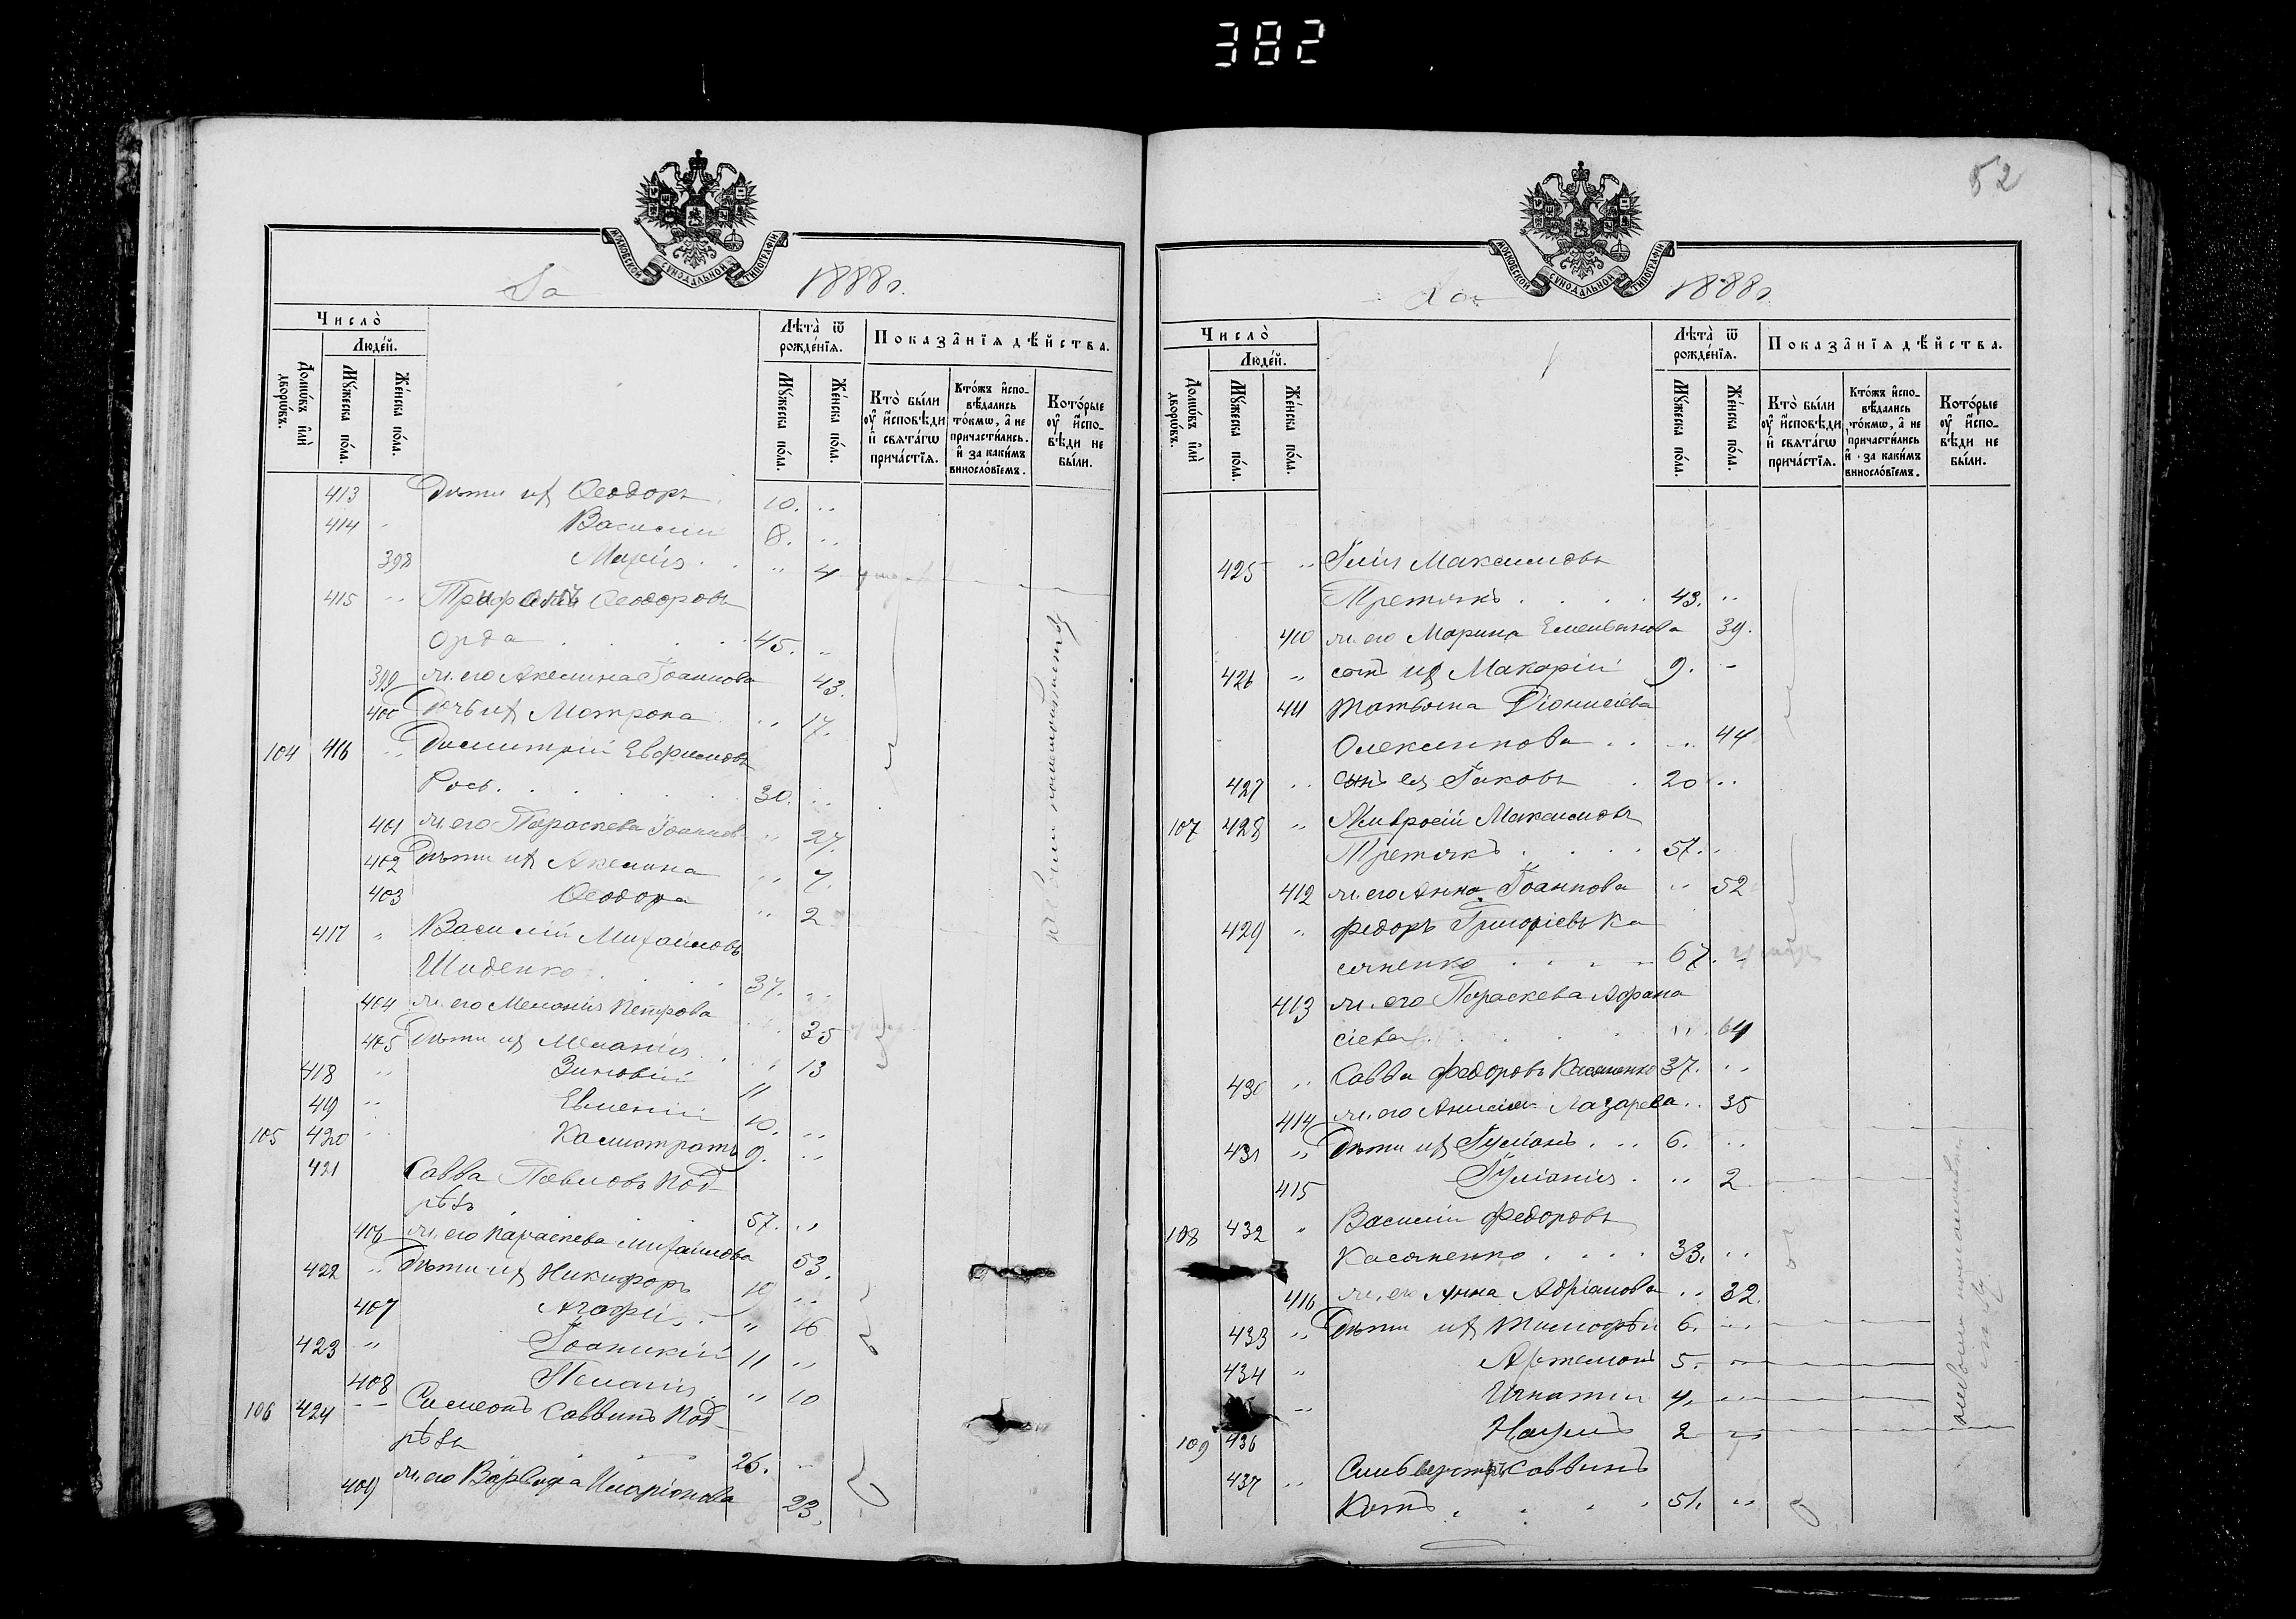 382
МОСКОВСКОЙ СѴНОДАЛЬНОЙ ТИПОГРАФІИ
За 1888 г.
Число̀
Люде́й.
Домѡ́въ и҆лѝ дворѡ́въ.
Мꙋ́жеска по́ла.
Же́нска по́ла.
Лѣ́та ѿ рожде́нїѧ.
Мꙋ́жеска по́ла.
Же́нска по́ла.
Показа̑нїѧ дѣ́йства.
Кто̀ бы́ли ᲂу҆ и҆сповѣ́ди и҆ свѧта́гѡ прича́стїѧ.
Кто́жъ и҆спо-
вѣ́дались
то́кмѡ, а҆ не
причасти́лись.
и҆ за каки́мъ
виносло́вїемъ.
Кото́рые
ᲂу҆ и҆спо-
вѣ́ди не
бы́ли.
413 Дѣти их Ѳеодоръ 10. ..
414 Василій 8. ..
398 Марія .. 4
415 Трифонъ Ѳеодоровъ
Орда 45. ..
399 ж. его Акелина Іоаннова 43.
400 Дочь их Матрона .. 17.
104 416 Димитрій Евфимовъ
Рось 30. ..
401 ж. его Параскева Іоаннов .. 27.
402 Дѣти их Акелина .. 7.
403 Ѳеодора .. 2
417 Василій Михайловъ
Шиденко 37. ..
404 ж. его Меланія Петрова .. 35
405 Дѣти их Меланія .. 13
418 Зиновій 11
419 Евменій 10. ..
105 420 Калистратъ 9. ..
421 Савва Павловъ Под-
рѣзъ 57. ..
406 ж. его Параскева Михайлова 53.
422 Дѣти их Никифоръ 19 ..
407 Агафія " 16
423 Іоаникій 11 ..
408 Пелагія " 10
106 424 Симеонъ Саввинъ Под-
рѣзъ 26. ..
409 ж. его Варвара Иларіонова 23.
52
МОСКОВСКОЙ СѴНОДАЛЬНОЙ ТИПОГРАФІИ
За 1888 г.
Число̀
Люде́й.
Домѡ́въ и҆лѝ дворѡ́въ.
Мꙋ́жеска по́ла.
Же́нска по́ла.
Лѣ́та ѿ рожде́нїѧ.
Мꙋ́жеска по́ла.
Же́нска по́ла.
Показа̑нїѧ дѣ́йства.
Кто̀ бы́ли ᲂу҆ и҆сповѣ́ди и҆ свѧта́гѡ прича́стїѧ.
Кто́жъ и҆спо-
вѣ́дались
то́кмѡ, а҆ не
причасти́лись
и҆ за каки́мъ
виносло́вїемъ.
Кото́рые
ᲂу҆ и҆спо-
вѣ́ди не
бы́ли.
425 " Илія Максимовъ
Третякъ 43. ..
410 ж. его Марина Емельянова 39.
426 " сынъ их Макарій 9. -
411 Татьяна Діонисіева
Олексинкова .. 44
427 .. сынъ ея Іаковъ 20 ..
107 428 " Амвросій Максимовъ
Третякъ 51. .
412 ж. его Анна Іоаннова .. 52
429 " Федоръ Григоріевъ Ка
сяненко 67. ..
413 ж. его Параскева Афана
сіева .. 64
430 .. Савва Федоровъ Касяненко 37. ..
414 ж. его Анисія Лазарева .. 35
431 " Дѣти их Іуліанъ 6. ..
415 Іуліанія .. 2
108 432 " Василій Федоровъ
Касяненко 33. ..
416 ж. его Анна Адріанова .. 32.
433 .. Дѣти их Тимофѣй 6. ..
434 " Артемонъ 5. ..
.. Игнатій 4. ..
109 436 Наумъ 2 ..
437 .. Сильвестръ Саввинъ
Котъ 51. ..